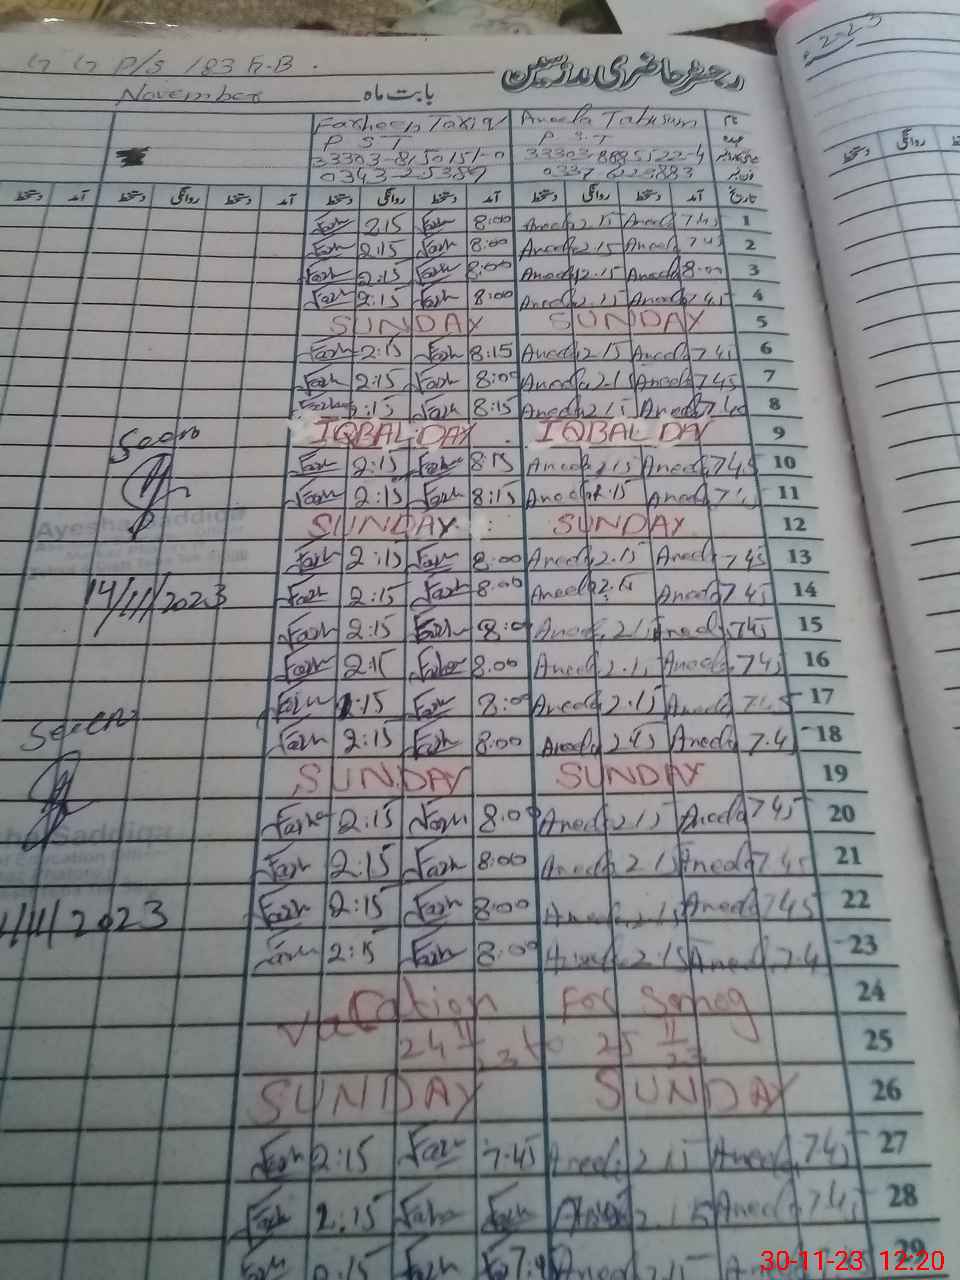 رجسٹر حاضری ملازمین
G G P/S 183 F.B.
بابت ماہ November
نام Aneela Tabusum Farheen Tariq
عہدہ P S T P S T
آمد دستخط روانگی دستخط آمد دستخط روانگی دستخط آمد دستخط روانگی دستخط آمد
1 7.45 Aneela 2.15 Aneela 8:00 Farh 2:15 Farh
2 7.45 Aneela 2.15 Aneela 8:00 Farh 2:15 Farh
3 8.00 Aneela 2.15 Aneela 8:00 Farh 2:15 Farh
4 7.45 Aneela 2.15 Aneela 8:00 Farh 2:15 Farh
5 SUNDAY SUNDAY
6 7.45 Aneela 2.15 Aneela 8:15 Farh 2:15 Farh
7 7.45 Aneela 2.15 Aneela 8:00 Farh 2:15 Farh
8 Aneela 2.15 Aneela 8:15 Farh 2:15
9 IQBAL DAY IQBAL DAY
Seen
10 7.45 Aneela 2.15 Aneela 8:15 Farh 2:15 Farh
11 Aneela 2.15 Aneela 8:15 Farh 2:15 Farh
Ayesha Saddiqa
12 SUNDAY SUNDAY
13 7.45 Aneela 2.15 Aneela 8:00 Farh 2:15 Farh
14 7.45 Aneela Aneela 8:00 Farh 2:15 Farh
14/11/2023
15 7.45 Aneela 2.15 Aneela 8:00 Farh 2:15 Farh
16 7.45 Aneela Aneela 8.00 Farh 2:15 Farh
17 7.45 Aneela 2.15 Aneela 8:00 Farh 2:15 Farh
Seen
18 7.4 Aneela 2.15 Aneela 8:00 Farh 2:15 Farh
19 SUNDAY SUNDAY
20 7.45 Aneela 2.15 Aneela 8:00 Farh 2:15
Saddiqa
21 7.45 Aneela 2.15 Aneela 8:00 Farh 2:15 Farh
22 7.45 Aneela 2.15 Aneela 8:00 Farh 2:15 Farh
/11/2023
23 7.4 Aneela 2.15 8:00 Farh 2:15 Farh
24 Vacation For Smog
25 24 11 23 to 25 11 23
26 SUNDAY SUNDAY
27 7.45 Aneela 2.15 Aneela 7.45 Farh 2:15 Farh
28 7.45 Aneela 2.15 Farh 2:15 Farh
29 Aneela 2.15 Farh 2:15 Farh
30-11-23 12:20